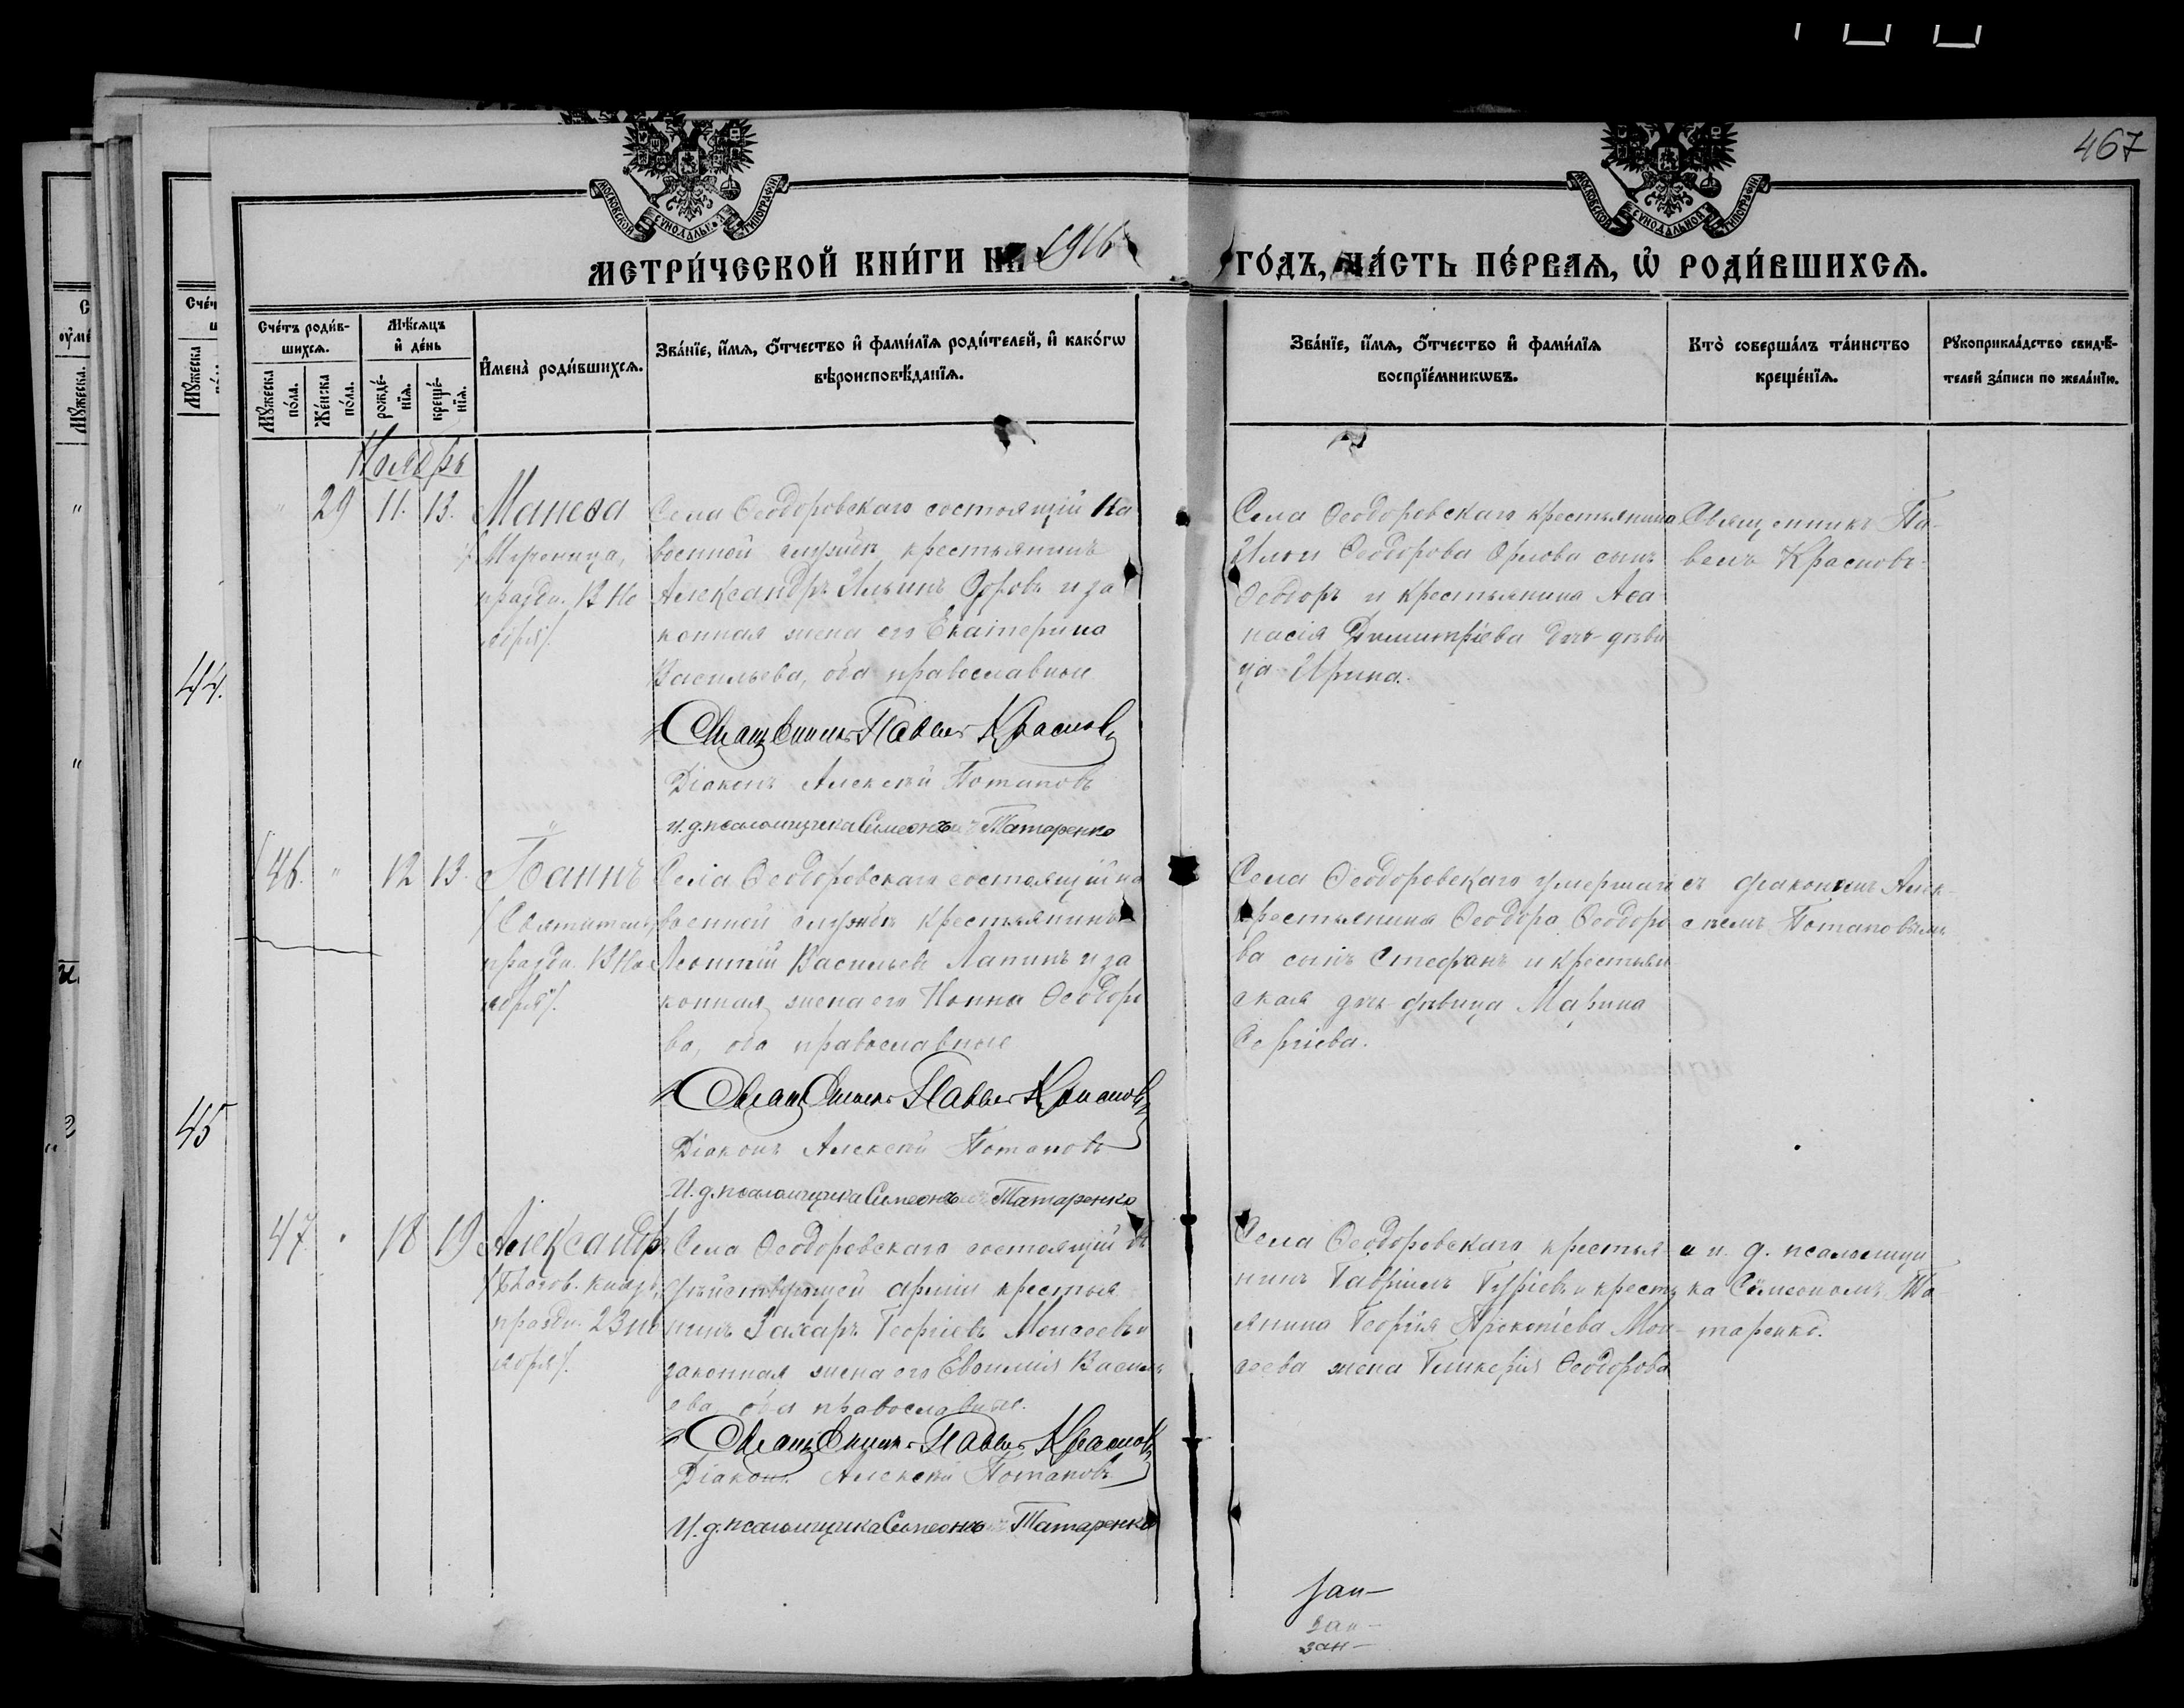 467
МОСКОВСКОЙ СѴНОДАЛЬНОЙ ТИПОГРАФІИ
МОСКОВСКОЙ СѴНОДАЛЬНОЙ ТИПОГРАФІИ
МЕТРИ́ЧЕСКОЙ КНИ́ГИ НА 1916
ГО́ДЪ, ЧА́СТЬ ПЕ́РВАЯ, Ѡ РОДИ́ВШИХСЯ.
Сче́тъ роди́в-
шихся.
Мѣ́сяцъ
и҆ де́нь
Мꙋ́жеска
по́ла.
Же́нска
по́ла.
рожде́-
нїя.
креще́-
нїя.
И҆мена̀ роди́вшихся.
Зва́нїе, и҆́мя, ѻ҆́тчество и҆ фами́лїя роди́телей, и҆ како́гѡ
вѣроисповѣ́данїя.
Зва́нїе, и҆́мя, ѻ҆́тчество и҆ фами́лїя
воспрїе́мникѡвъ.
Кто̀ соверша́лъ та́инство
креще́нїя.
Рꙋкоприкла́дство свидѣ́-
телей за́писи по жела́нїю.
Ноябрь
" 29 11. 13. Манефа
/Мученица,
праздн. 13 Но
ября/.
Села Ѳеодоровскаго состоящій на
военной службѣ крестьянинъ
Александръ Ильинъ и за
конная жена его Екатерина
Васильева, оба православные
Священникъ Павелъ Красновъ
Діаконъ Алексѣй Потаповъ
И. д. псаломщика Симеонъ Татаренко
Села Ѳеодоровскаго крестьянина
Ильи Ѳеодорова Орлова сынъ
Ѳеодоръ и крестьянина Аѳа
насія Димитріева дочь дѣви
ца Ирина.
Священникъ Па-
велъ Красновъ
44.
46. " 12 13. Іоаннъ
/Святитель,
праздн. 13 Но
ября/.
Села Ѳеодоровскаго состоящій на
военной службѣ крестьянинъ
Леонтій Васильевъ Лапинъ и за
конная жена его Нонна Ѳеодоро
ва, оба православные
Священникъ Павелъ Красновъ
Діаконъ Алексѣй Потаповъ
И. д. псаломщика Симеонъ Татаренко
Села Ѳеодоровскаго умершаго
крестьянина Ѳеодора Ѳеодоро
ва сынъ Стефанъ и крестьян
ская дочь дѣвица Марина
Сергіева.
съ діакономъ Алек-
сѣемъ Потаповымъ
45
47. " 18 19 Александръ
/Благов. князь,
праздн. 23 но
ября/.
Села Ѳеодоровскаго состоящій въ
дѣйствующей арміи крестья
нинъ Захаръ Георгіевъ Моисеевъ и
законная жена его Евѳимія Василь
ева, оба православные.
Священникъ Павелъ Красновъ
Діакон. Алексѣй Потаповъ
И. д. псаломщика Симеонъ Татаренко
Села Ѳеодоровскаго крестья-
нинъ Гавріилъ Гуріевъ и кресть
янина Георгія Прокопіева Мои-
сеева жена Гликерія Ѳеодорова
и и. д. псаломщи
ка Сѵмеономъ Та
таренко.
зап—
зап—
зап—